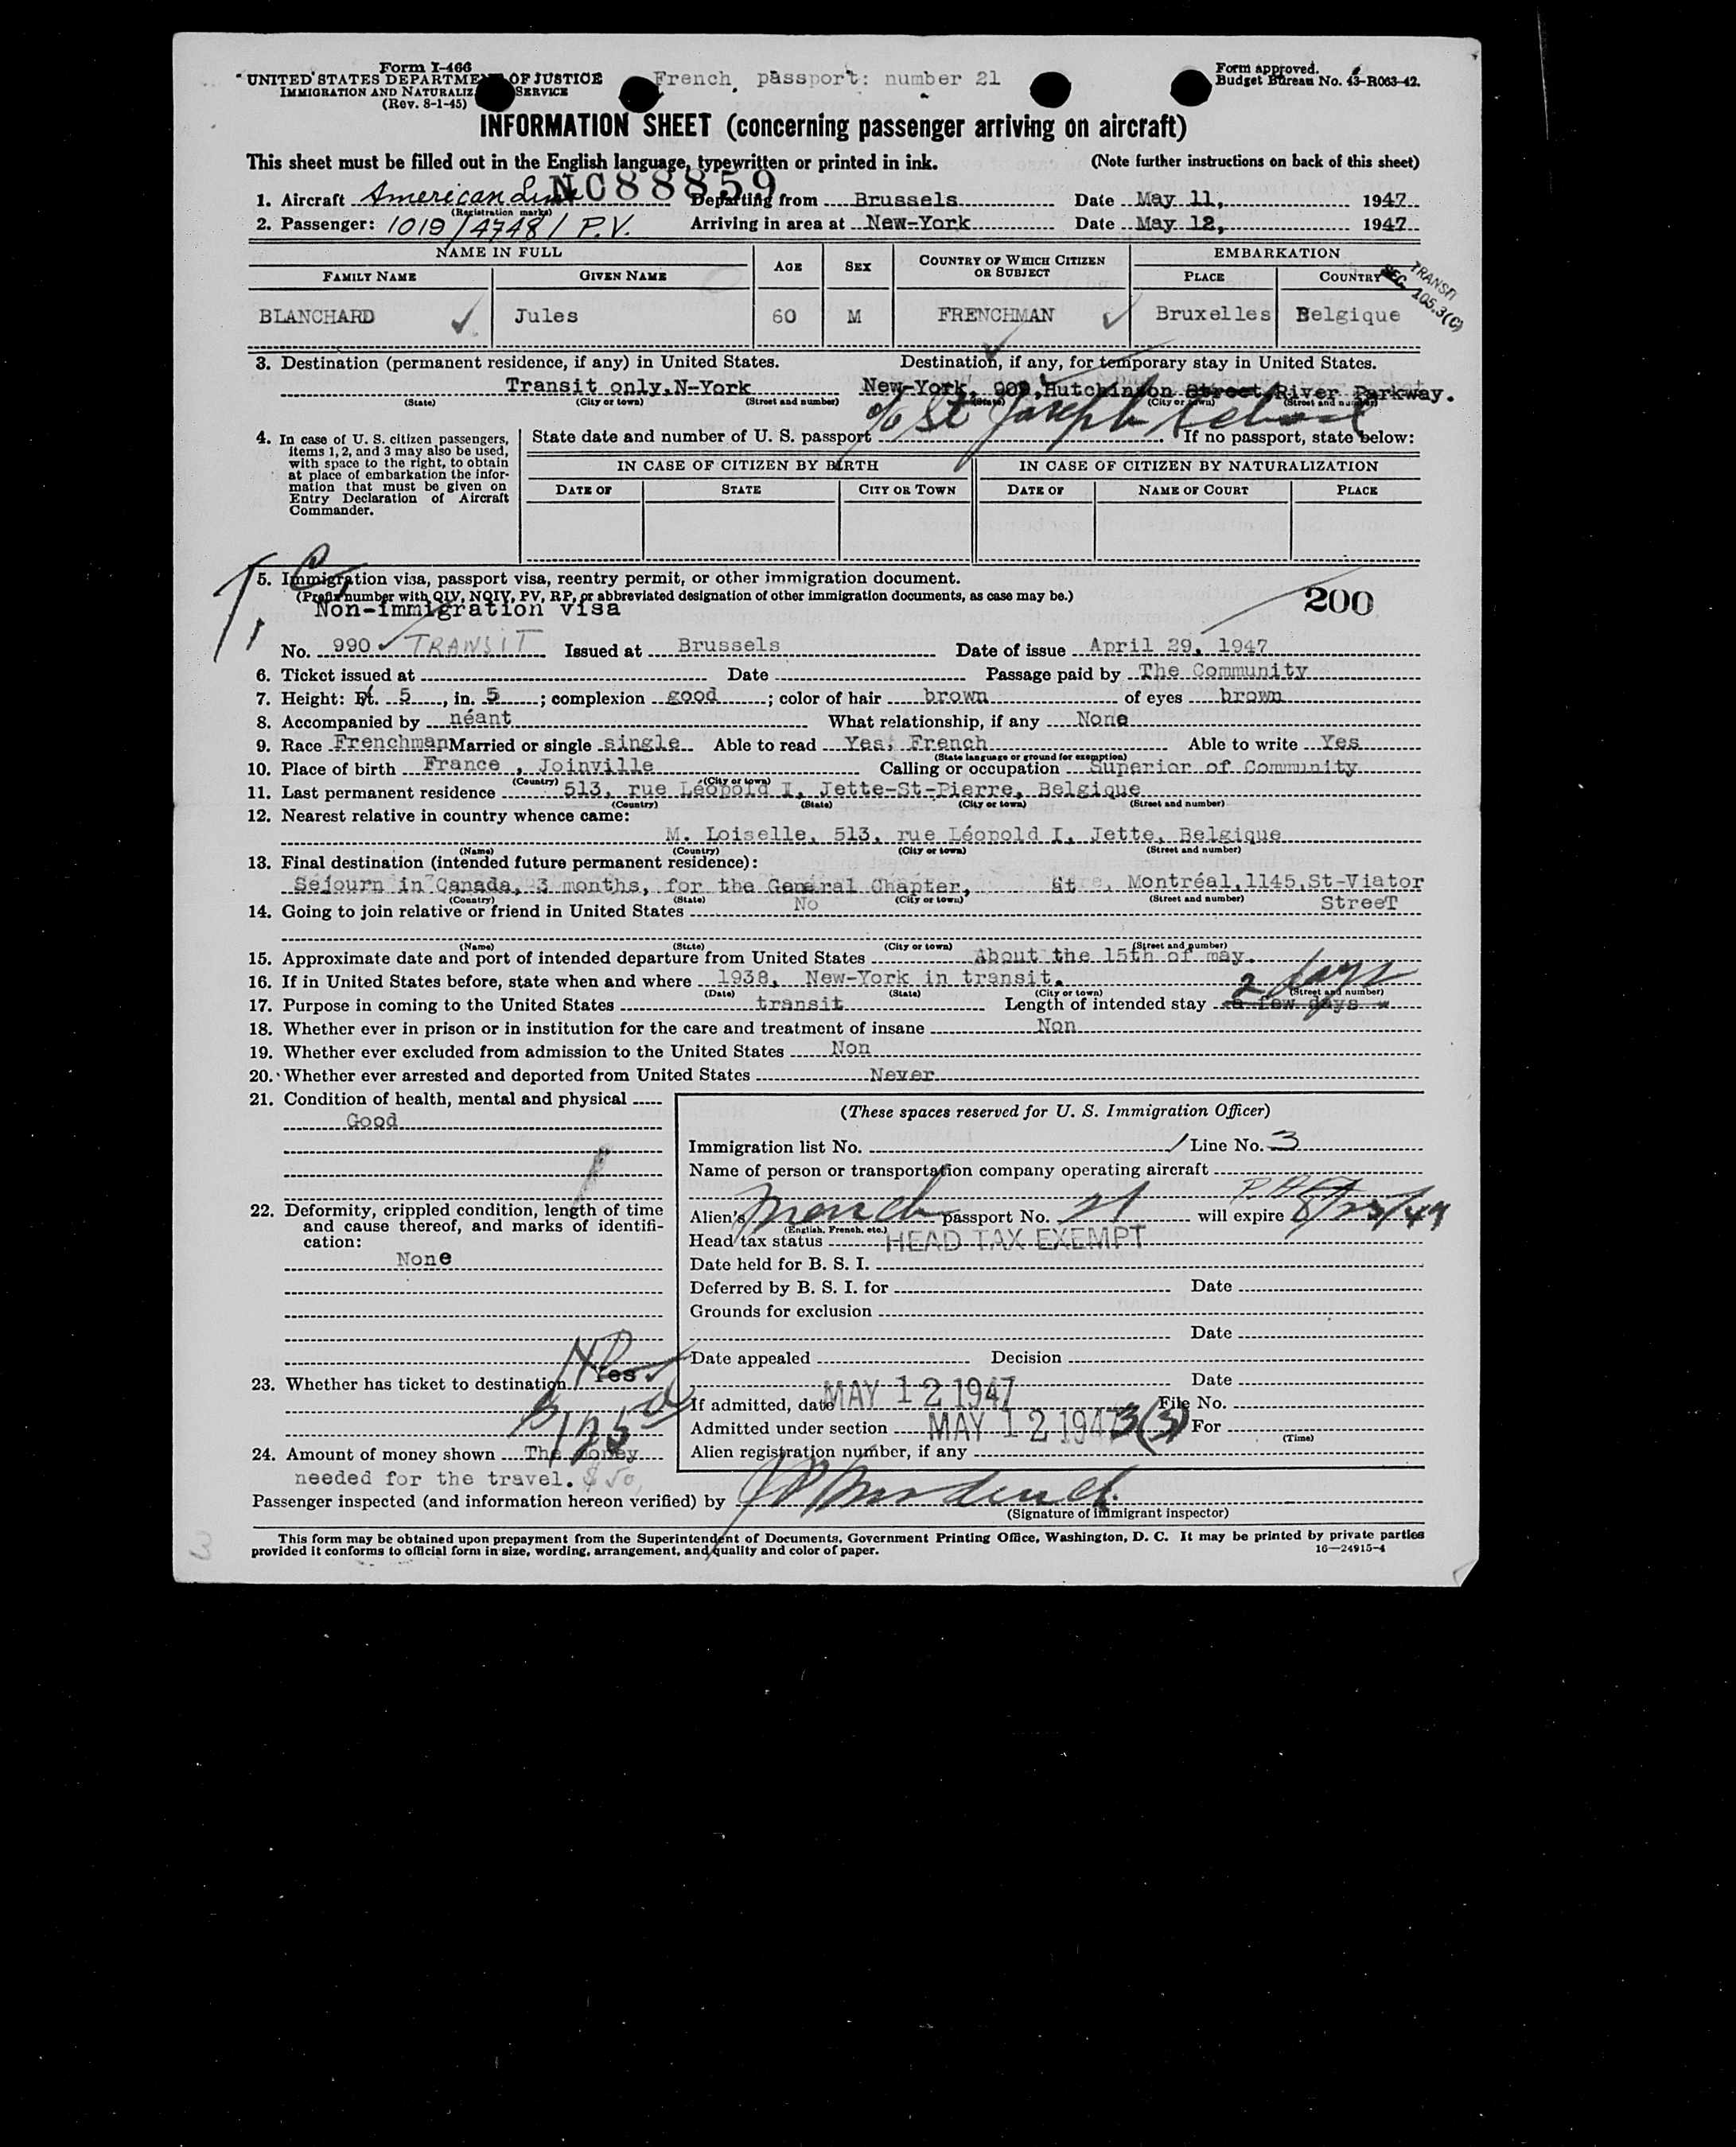 Form I-466
UNITED STATES DEPARTMENT OF JUSTICE
IMMIGRATION AND NATURALIZ SERVICE
(Rev. 8-1-45)
French passport: number 21
Form approved.
Budget Bureau No. 43-R063-42.
INFORMATION SHEET (concerning passenger arriving on aircraft)
This sheet must be filled out in the English language, typewritten or printed in ink. (Note further instructions on back of this sheet)
1. Aircraft American Line NC88859 Departing from Brussels Date May 11, 1947
(Registration marks)
2. Passenger: 1019/4748/ P.V. Arriving in area at New-York Date May 12, 1947
NAME IN FULL AGE SEX COUNTRY OF WHICH CITIZEN OR SUBJECT EMBARKATION
FAMILY NAME GIVEN NAME PLACE COUNTRY
TRANSIT
SEC. 105.3(C)
BLANCHARD Jules 60 M FRENCHMAN Bruxelles Belgique
3. Destination (permanent residence, if any) in United States. Destination, if any, for temporary stay in United States.
Transit only,N-York New-York, 900,Hutchinson Street,River Parkway.
(State) (City or town) (Street and number) (State) (City or town) (Street and number)
c/o St Joseph School
4. In case of U. S. citizen passengers, items 1, 2, and 3 may also be used, with space to the right, to obtain at place of embarkation the information that must be given on Entry Declaration of Aircraft Commander.
State date and number of U. S. passport If no passport, state below:
IN CASE OF CITIZEN BY BIRTH IN CASE OF CITIZEN BY NATURALIZATION
DATE OF STATE CITY OR TOWN DATE OF NAME OF COURT PLACE
5. Immigration visa, passport visa, reentry permit, or other immigration document.
(Prefix number with QIV, NQIV, PV, RP, or abbreviated designation of other immigration documents, as case may be.)
Non-immigration visa 200
No. 990 TRANSIT Issued at Brussels Date of issue April 29, 1947
6. Ticket issued at Date Passage paid by The Community
7. Height: Ft. 5, in. 5; complexion good; color of hair brown of eyes brown
8. Accompanied by néant What relationship, if any None
9. Race Frenchman Married or single single Able to read Yes, French Able to write Yes
(State language or ground for exemption)
10. Place of birth France , Joinville Calling or occupation Superior of Community
(Country) (City or town)
11. Last permanent residence 513, rue Léopold I, Jette-St-Pierre, Belgique
(Country) (State) (City or town) (Street and number)
12. Nearest relative in country whence came:
M. Loiselle, 513, rue Léopold I, Jette, Belgique
(Name) (Country) (City or town) (Street and number)
13. Final destination (intended future permanent residence):
Sejourn in Canada, 3 months, for the General Chapter, at Montréal,1145,St-Viator
(Country) (State) (City or town) (Street and number)
StreeT
14. Going to join relative or friend in United States No
(Name) (State) (City or town) (Street and number)
15. Approximate date and port of intended departure from United States About the 15th of may.
16. If in United States before, state when and where 1938, New-York in transit.
(Date) (State) (City or town) (Street and number)
2 days
17. Purpose in coming to the United States transit Length of intended stay a few days
18. Whether ever in prison or in institution for the care and treatment of insane Non
19. Whether ever excluded from admission to the United States Non
20. Whether ever arrested and deported from United States Never
21. Condition of health, mental and physical
Good
22. Deformity, crippled condition, length of time and cause thereof, and marks of identification:
None
23. Whether has ticket to destination Yes
NO
$125
24. Amount of money shown The money
needed for the travel. $50,
(These spaces reserved for U. S. Immigration Officer)
Immigration list No. Line No. 3
Name of person or transportation company operating aircraft
Alien's French passport No. 21 will expire
(English, French, etc.)
Head tax status HEAD TAX EXEMPT
Date held for B. S. I.
Deferred by B. S. I. for Date
Grounds for exclusion
Date
Date appealed Decision
Date
If admitted, date MAY 12 1947 File No.
Admitted under section MAY 12 1947 3(3) For
(Time)
Alien registration number, if any
Passenger inspected (and information hereon verified) by
(Signature of immigrant inspector)
This form may be obtained upon prepayment from the Superintendent of Documents, Government Printing Office, Washington, D. C. It may be printed by private parties
provided it conforms to official form in size, wording, arrangement, and quality and color of paper.
16—24915-4
3